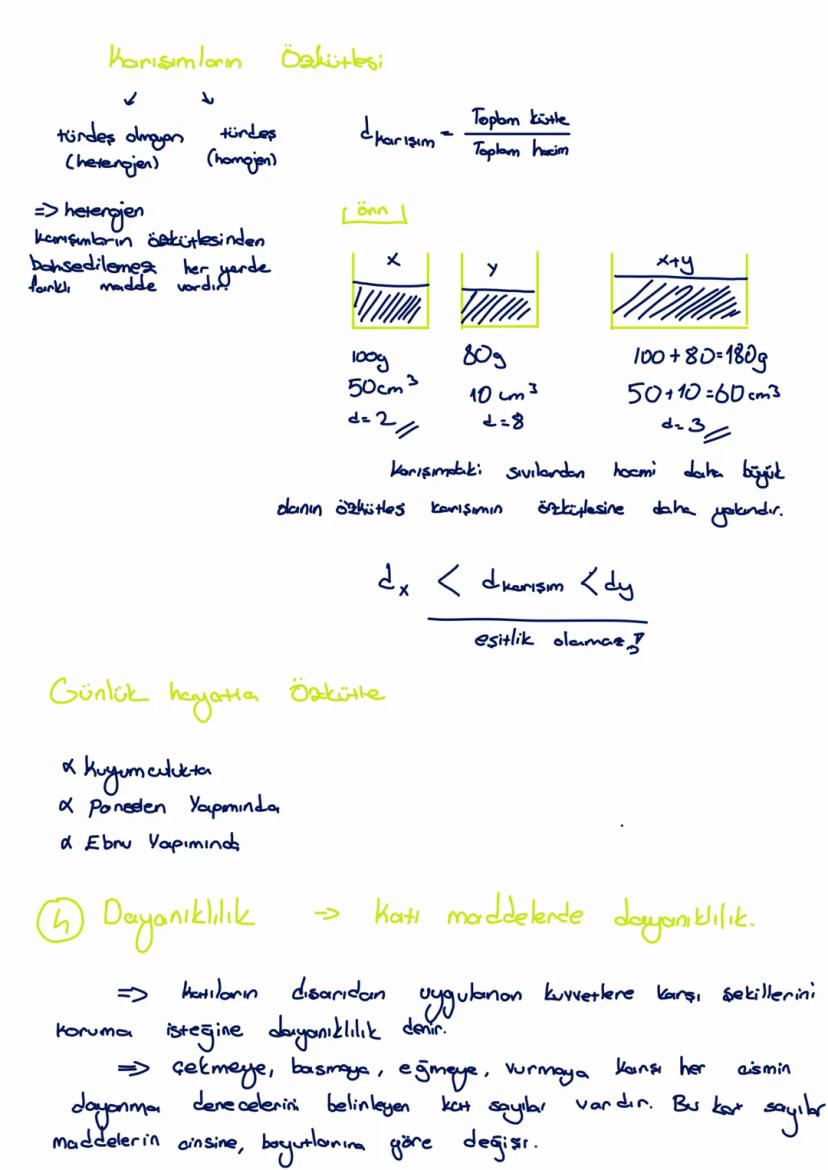 Karışımların Özkütlesi
türdeş olmayan türdeş
(heterojen) (homojen)
d karışım = Toplam kütle
Toplam hacim
=> heterojen
karışımların özkütlesinden
bahsedilemez her yerde
farklı madde vardır.
örn
x y x+y
100g 80g 100+80=180g
50cm³ 10cm³ 50+10=60cm³
d=2 d=8 d=3
Karışımdaki sıvılardan hacmi daha büyük
olanın özkütles karışımın özkütlesine daha yakındır.
dx < dkarışım < dy
eşitlik olamaz!
Günlük hayatta Özkütle
α Kuyumculukta
α Porselen Yapımında
α Ebru Yapımında
Dayanıklılık → Katı maddelerde dayanıklılık.
=> Katıların dışarıdan uygulanan kuvvetlere karşı şekillerini
koruma isteğine dayanıklılık denir.
=> Çekmeye, basmaya, eğmeye, vurmaya karşı her cismin
dayanma derecelerini belirleyen kat sayılar vardır. Bu kat sayılar
maddelerin cinsine, boyutlarına göre değişir.